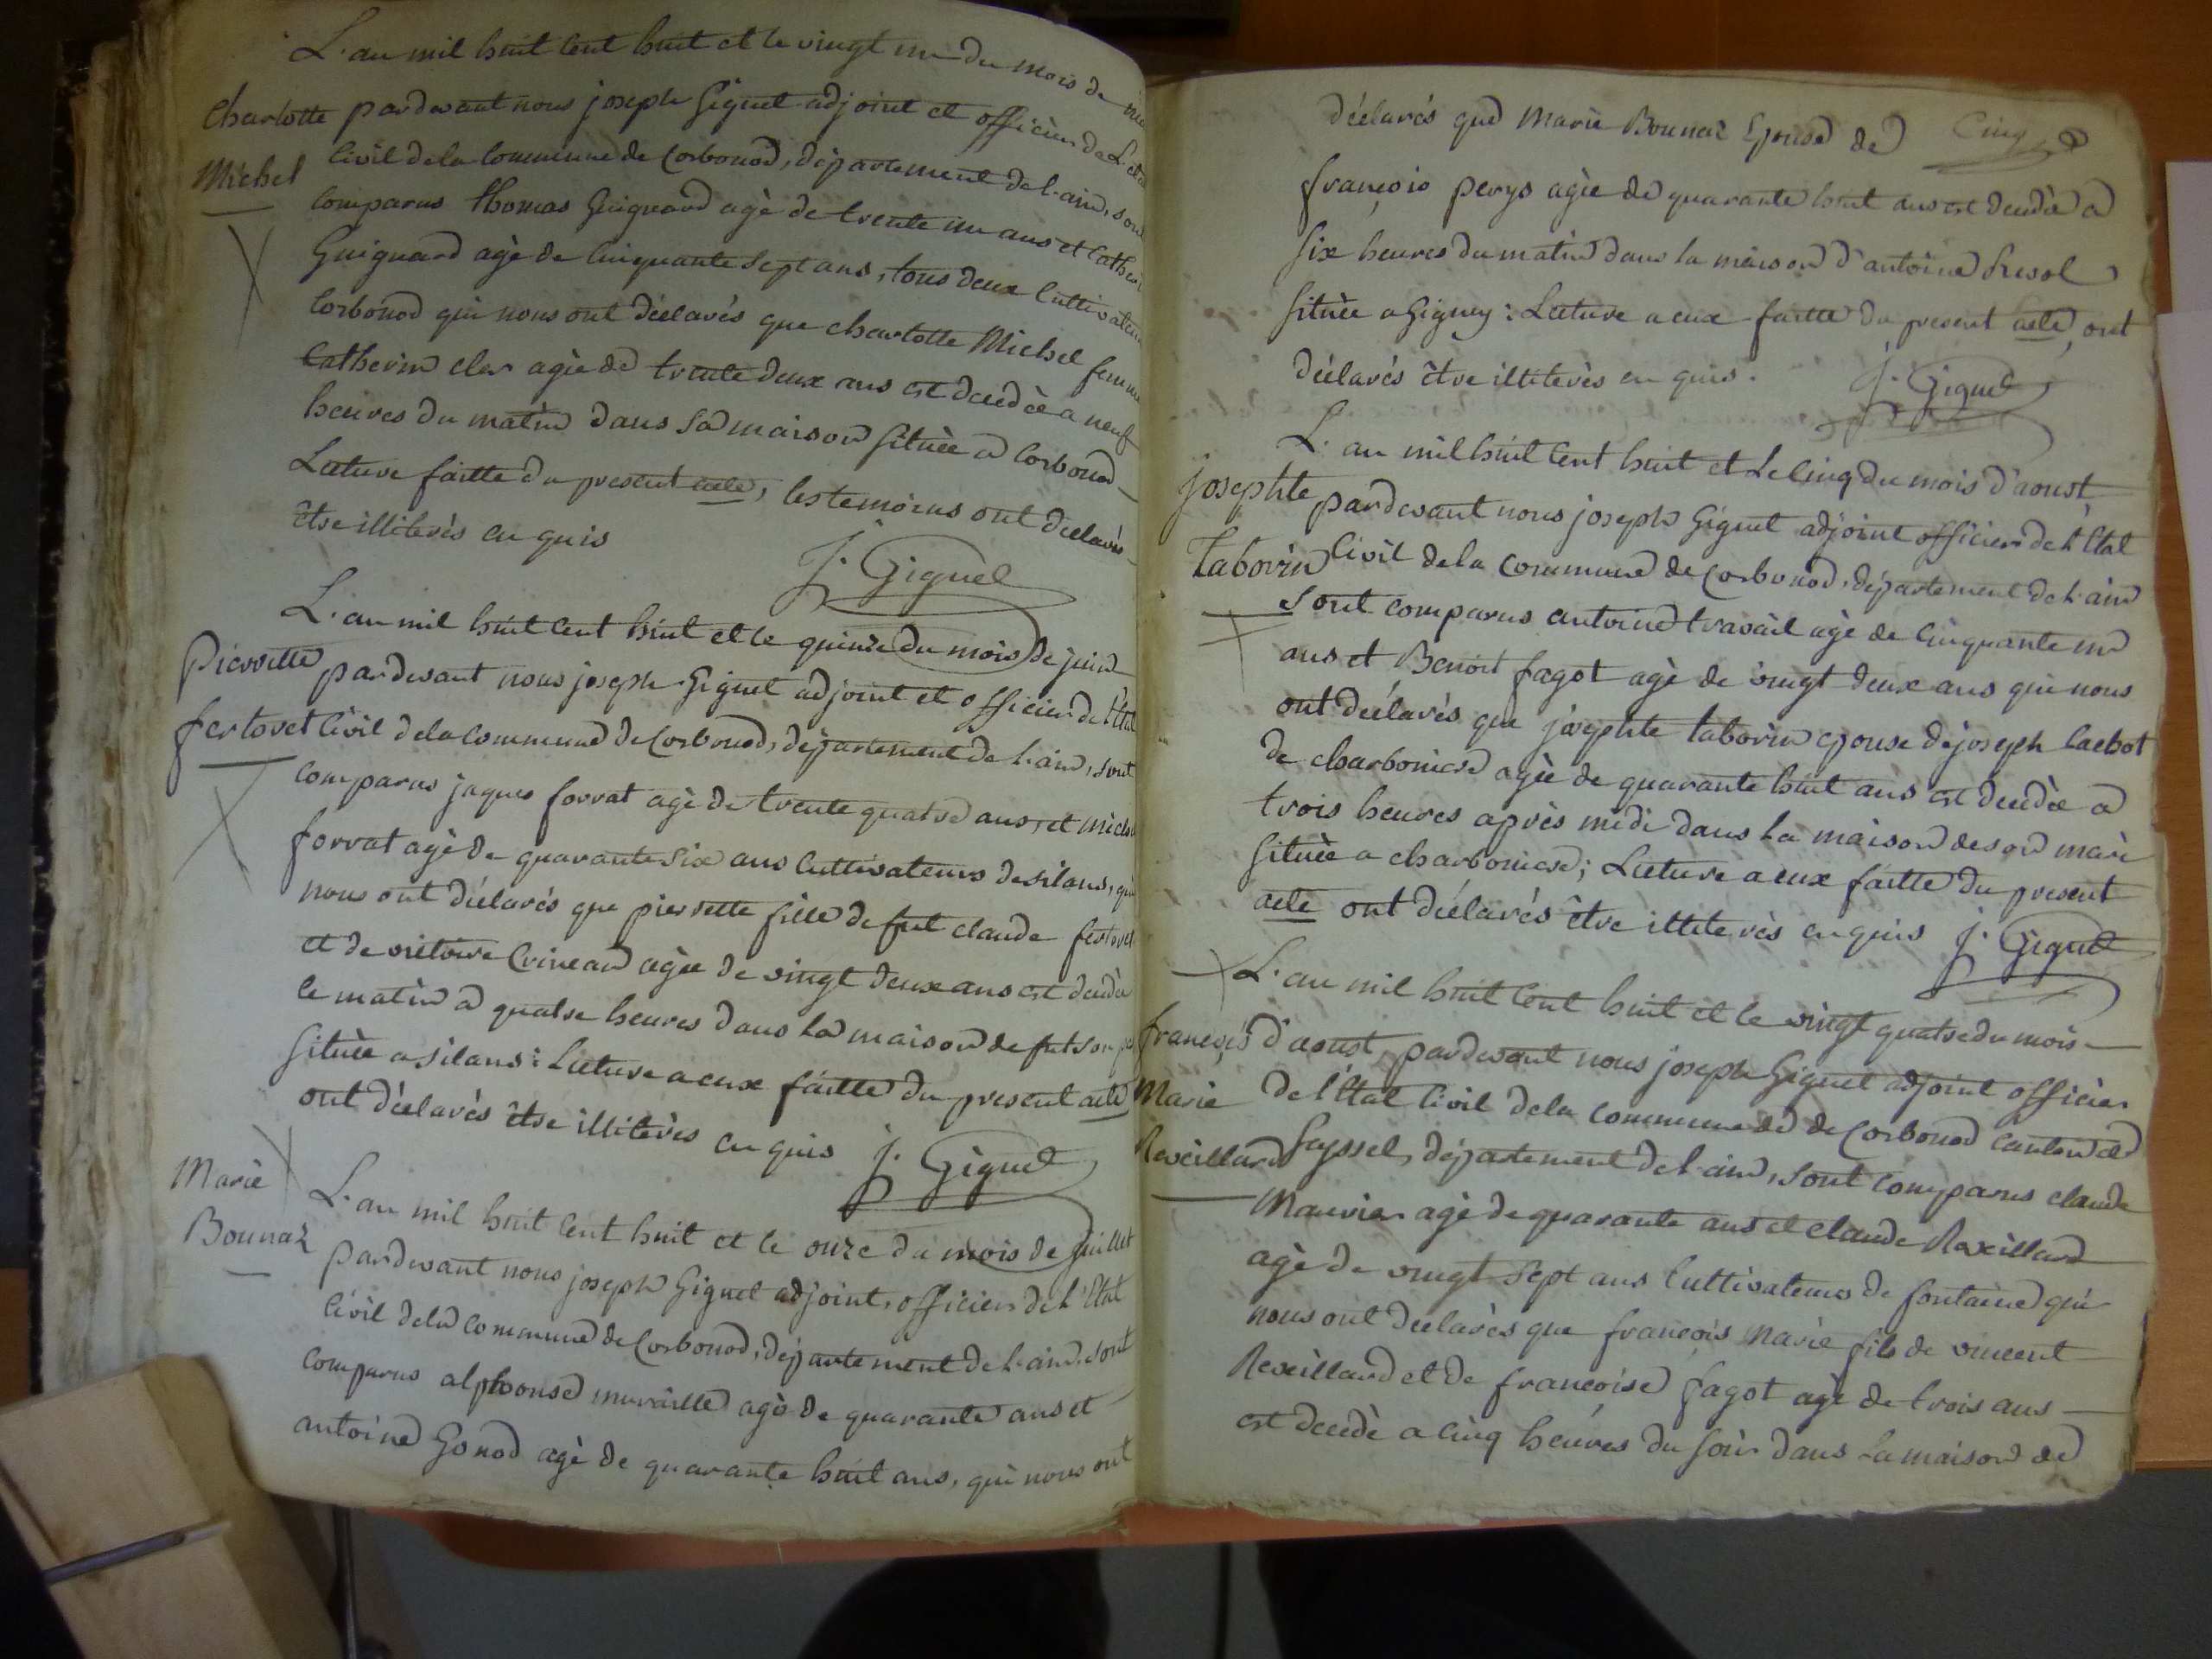 L'an mil huit cent huit et le vingt un du mois de
Charlotte
Michel
pardevant nous joseph Giguet adjoint et officier de L'etat
Civil dela Commune de Corbonod, département de l'ain, sont
comparus thomas Guignard agé de trente un ans et
Guignard agé de Cinquante Sept ans, tous deux Cultivateurs
Corbonod qui nous ont déclarés que charlotte Michel femme
Catherin cler agée de trente deux ans est decedée a neuf
heures du matin dans Sa maison Située a Corbonod
Lecture faitte du present acte, les temoins ont declarés
être illiterés en quis
J. Giguet
L'an mil huit cent huit et le quinze du mois de juin
Pierrette
fertoret
pardevant nous joseph Giguet adjoint et officier de l'Etat
Civil dela Commune de Corbonod, département de l'ain, sont
comparus jaques forrat agé de trente quatre ans, et
forrat agé de quarante Six ans Cultivateurs de silans, qui
nous ont déclarés que pierrette fille de fut claude fertoret
et de victoire agée de vingt deux ans est decedée
le matin a quatre heures dans la maison de fut son
Située a silans: Lecture a eux faitte du present acte
ont déclarés être illiterés en quis J. Giguet
Marie
Bounaz
L'an mil huit Cent huit et le onze du mois de juillet
pardevant nous joseph Giguet adjoint, officier de l'Etat
Civil dela Commune de Corbonod, département de l'ain, sont
Comparus alphonse muraille agé de quarante ans et
antoine Gonod agé de quarante huit ans, qui nous ont
déclarés que Marie Bounaz Epouse de
Cinq
françois perys agée de quarante huit ans est decedée a
Six heures du matin dans la maison d'antoine
Située a Gigney: Lecture a eux faitte du present acte, ont
déclarés être illiterés en quis. J. Giguet
L'an mil huit Cent huit et Le Cinq du mois d'aoust
Josephte
Taborin
pardevant nous joseph Giguet adjoint officier de l'Etat
Civil dela Commune de Corbonod, département de l'ain
Sont comparus antoine travail agé de Cinquante un
ans et Benoit fagot agé de vingt deux ans qui nous
ont déclarés que josephte taborin epouse de joseph Cachot
de charboniere agée de quarante huit ans est decedée a
trois heures après midi dans la maison de son mari
Située a charboniere; Lecture a eux faitte du present
acte ont déclarés être illiterés en quis J. Giguet
L'an mil huit Cent huit et le vingt quatre du mois
françois
Marie
Reveillard
d'aoust, pardevant nous joseph Giguet adjoint officier
de l'Etat Civil dela commune de de Corbonod canton de
Seyssel, département de l'ain, sont comparus claude
Mauvier agé de quarante ans et claude Reveillard
agé de vingt Sept ans Cultivateurs de fontaine qui
nous ont declarés que françois marie fils de vincent
Reveillard et de françoise fagot agé de trois ans
est decedé a Cinq heures du soir dans la maison de